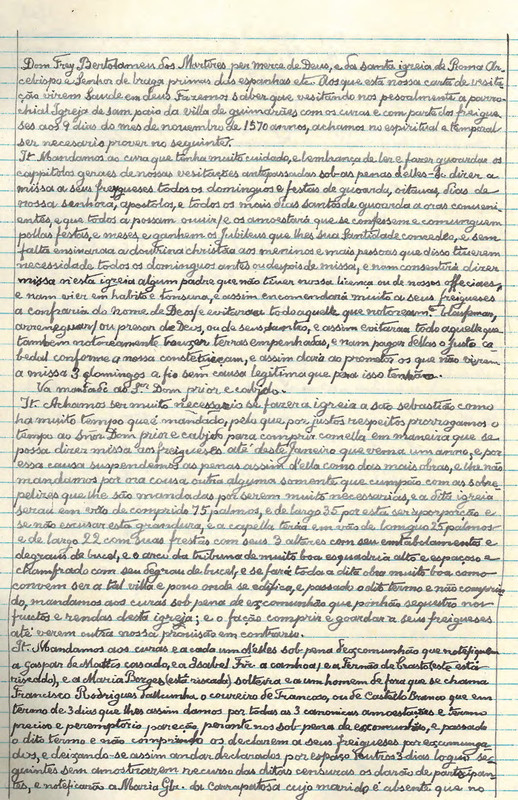 Dom Frey Bertolameu dos Martires per merce de Deus, e da santa igreja de Roma Ar-
cebispo e Senhor de braga primas das espanhas etc. Aos que esta nossa carta de vesita-
ção virem Saude em deus Fazemos saber que vesitando nos pesoalmente a parro-
chial Igreja de sam paio da villa de guimarães com os curas e com parte dos freigue-
ses aos 9 dias do mes de novembro de 1570 annos, achamos no espiritual e temporal
ser necesario prover no seguinte.
It. Mandamos ao cura que tenha muito cuidado, e lembrança de ler e fazer guoardar os
cappitolos geraes de nossas vesitações antepassadas sob-as penas delles - Iu direr a
missa a seus freygueses todos os domingos e festas de guoarda, oitavas, dias de
nossa senhora, apostolos, e todos os mais dias santos de guoarda a oras conveni-
entes, e que todos a possam ouuir / e os amoestará que se confessem e comunguem
pollas festas, e meses, e ganhem os Jubileus que lhes sua Santidade concedeo, e sem
falta ensinara a doutrina christãa aos meninos e mais pessoas que disso tiverem
necessidade todos os domingos antes ou depois de missa, e nam consentirá dizer
missa nesta igreja algum padre que não tiver nossa licença ou de nossos officiaes,
e nam vier em habito e tonsura, e assim encomendará muito a seus freigueses
a confraria do nome de Deos / e evitara todo aquelle que notoream. blasfemar,
arreneguar / ou pesar de Deus, ou de seus santos, e assim evitara todo aquelle que
tambem notoreamente trouxer terras empenhadas, e nam pagar dellas o justo ca
bedal conforme a nossa constetuiçam, e assim dara ao promotor os que não virem
a missa 3 domingos a fio sem causa legitima que para isso tenhão.
Va mandado ao S.or Dom prior e cabido.
It. Achamos ser muito necessario se fazer a igreja a são sebastião como
ha muito tempo que é mandado, pelo que, por justos respeitos prorogamos o
tempo ao Snor Dom prior e cabido para comprir com ella em maneira que se
possa direr missa aos freigueses até deste janeiro que vem a um anno, e por
essa causa suspendemos as penas assim d'ella como das mais obras, e lhe não
mandamos por ora cousa outra alguma somente que cumpão com as sobre-
pelizes que lhe são mandadas por serem muito necessarias, e a dita igreja
será em vão de comprido 75 palmos, e de largo 35 por esta ser sua proporção e
se não escusar esta grandura, e a capella terá em vão de longuo 25 palmos
e de largo 22 com duas frestas com seus 3 altares com seu entabolamento e
degraus de bucel, e o arco da tribuna de muito boa esquadria alto e espaçoso e
chamfrado com seu degrau de bucel, e se fará toda a dita obra muito boa como
convem ser a tal villa e povo onde se edifica, e passado o dito termo e não comprin-
do, mandamos aos curas sob pena de excomunhão que ponhão sequestro nos
fructos e rendas desta igreja; e o fação comprir e goardar a seus freigueses
até verem outra nossa provisão em contrario.
It. Mandamos aos curas e a cada um delles sob pena de excomunhão que notefiquem
a Gaspar de Mattos casado, e a Isabel Frz a canhoa, e a Fernão de Crasto (este está
riscado), e a Maria Borges (está riscado) solteira e a um homem de fora que se chama
Francisco Rodrigues o coureiro de Francoso, ou de Castello Branco que em
termo de 3 dias que lhes assim damos por todas as 3 canonicas amoestações e termo
preciso e peremptorio pareção perante nos sob pena de excomunhão, e passado
o dito termo e não comprindo os declarem a seus freigueses por excomunga-
dos, e deixando-se assim andar declarados por espaço doutros 3 dias loguo se-
guintes sem amostrarem recurso das ditas censuras os darão de partecipan-
tes, e noteficarão a Maria Glz. da Carrapatosa cujo marido é absente que no